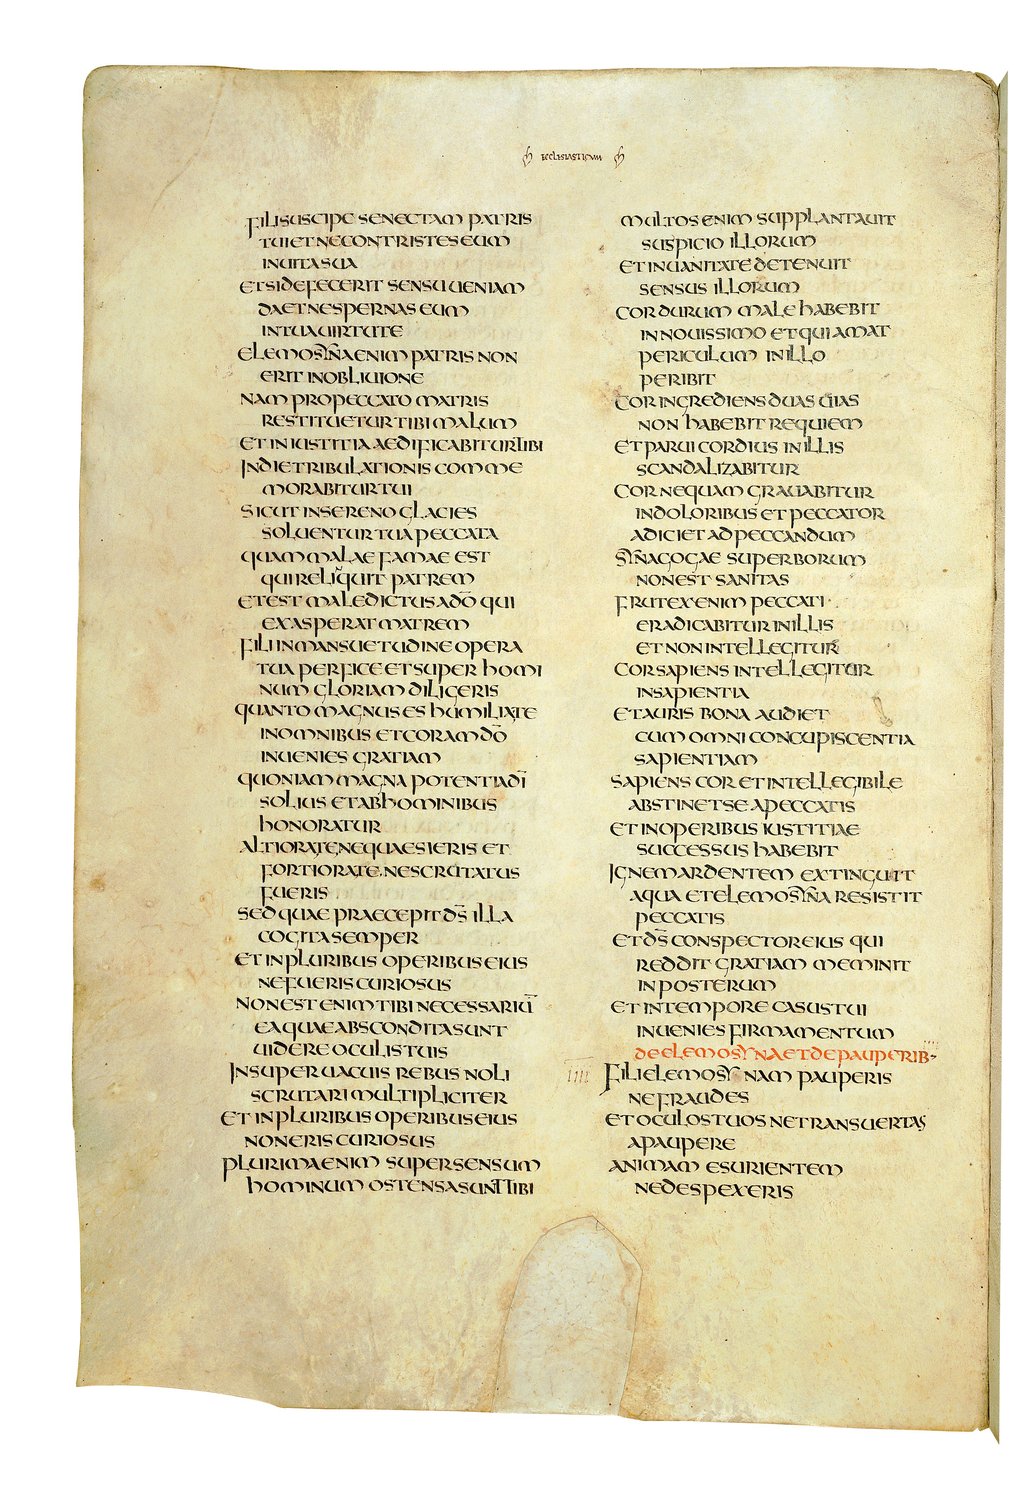 ECCLESIASTICUM
FILI SUSCIPE SENECTAM PATRIS
TUI ET NE CONTRISTES EUM
IN UITA SUA
ET SI DEFECERIT SENSU UENIAM
DA ET NE SPERNAS EUM
IN TUA UIRTUTE
ELEMOSYNA ENIM PATRIS NON
ERIT IN OBLIUIONE
NAM PRO PECCATO MATRIS
RESTITUETUR TIBI MALUM
ET IN IUSTITIA AEDIFICABITUR TIBI
IN DIE TRIBULATIONIS COMME
MORABITUR TUI
SICUT IN SERENO GLACIES
SOLUENTUR TUA PECCATA
QUAM MALAE FAMAE EST
QUI RELIQUIT PATREM
ET EST MALEDICTUS A DŌ QUI
EXASPERAT MATREM
FILI IN MANSUETUDINE OPERA
TUA PERFICE ET SUPER HOMI
NUM GLORIAM DILIGERIS
QUANTO MAGNUS ES HUMILIATE
IN OMNIBUS ET CORAM DŌ
INUENIES GRATIAM
QUONIAM MAGNA POTENTIA DĪ
SOLIUS ET AB HOMINIBUS
HONORATUR
ALTIORA TE NE QUAESIERIS ET
FORTIORA TE NE SCRUTATUS
FUERIS
SED QUAE PRAECEPIT DS̄ ILLA
COGITA SEMPER
ET IN PLURIBUS OPERIBUS EIUS
NE FUERIS CURIOSUS
NON EST ENIM TIBI NECESSARIŪ
EA QUAE ABSCONDITA SUNT
UIDERE OCULIS TUIS
IN SUPERUACUIS REBUS NOLI
SCRUTARI MULTIPLICITER
ET IN PLURIBUS OPERIBUS EIUS
NON ERIS CURIOSUS
PLURIMA ENIM SUPER SENSUM
HOMINUM OSTENSA SUNT TIBI
MULTOS ENIM SUPPLANTAUIT
SUSPICIO ILLORUM
ET IN UANITATE DETENUIT
SENSUS ILLORUM
COR DURUM MALE HABEBIT
IN NOUISSIMO ET QUI AMAT
PERICULUM IN ILLO
PERIBIT
COR INGREDIENS DUAS UIAS
NON HABEBIT REQUIEM
ET PARUI CORDIUS IN ILLIS
SCANDALIZABITUR
COR NEQUAM GRAUABITUR
IN DOLORIBUS ET PECCATOR
ADICIET AD PECCANDUM
SYNAGOGAE SUPERBORUM
NON EST SANITAS
FRUTEX ENIM PECCATI
ERADICABITUR IN ILLIS
ET NON INTELLEGITUR
COR SAPIENS INTELLEGITUR
IN SAPIENTIA
ET AURIS BONA AUDIET
CUM OMNI CONCUPISCENTIA
SAPIENTIAM
SAPIENS COR ET INTELLEGIBILE
ABSTINET SE A PECCATIS
ET IN OPERIBUS IUSTITIAE
SUCCESSUS HABEBIT
IGNEM ARDENTEM EXTINGUIT
AQUA ET ELEMOSYNA RESISTIT
PECCATIS
ET DS̄ CONSPECTOR EIUS QUI
REDDIT GRATIAM MEMINIT
IN POSTERUM
ET IN TEMPORE CASUS TUI
INUENIES FIRMAMENTUM
DE ELEMOSYNA ET DE PAUPERIB·
IIII FILI ELEMOSYNAM PAUPERIS
NE FRAUDES
ET OCULOS TUOS NE TRANSUERTAS
A PAUPERE
ANIMAM ESURIENTEM
NE DESPEXERIS